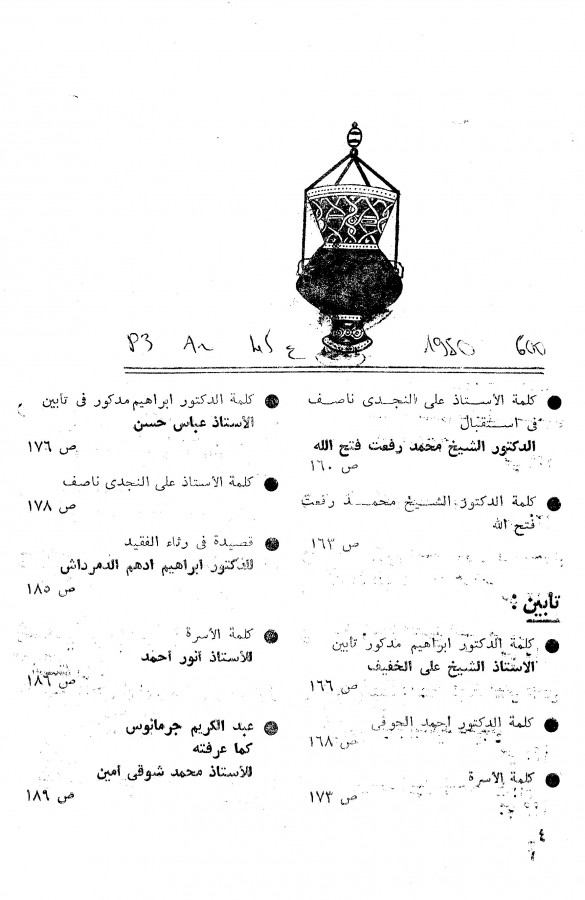 1980
600
● كلمة الأستاذ على النجدى ناصف
فى استقبال
الدكتور الشيخ محمد رفعت فتح الله
ص ١٦٠
● كلمة الدكتور الشيخ محمد رفعت
فتح الله
ص ١٦٣
تأبين :
● كلمة الدكتور ابراهيم مدكور تأبين
الأستاذ الشيخ على الخفيف
ص ١٦٦
● كلمة الدكتور احمد الحوفى
ص ١٦٨
● كلمة الأسرة
ص ١٧٣
● كلمة الدكتور ابراهيم مدكور فى تأبين
الأستاذ عباس حسن
ص ١٧٦
● كلمة الأستاذ على النجدى ناصف
ص ١٧٨
● قصيدة فى رثاء الفقيد
للدكتور ابراهيم ادهم الدمرداش
ص ١٨٥
● كلمة الأسرة
للأستاذ أنور أحمد
ص ١٨٦
● عبد الكريم جرمانوس
كما عرفته
للأستاذ محمد شوقى أمين
ص ١٨٩
٤